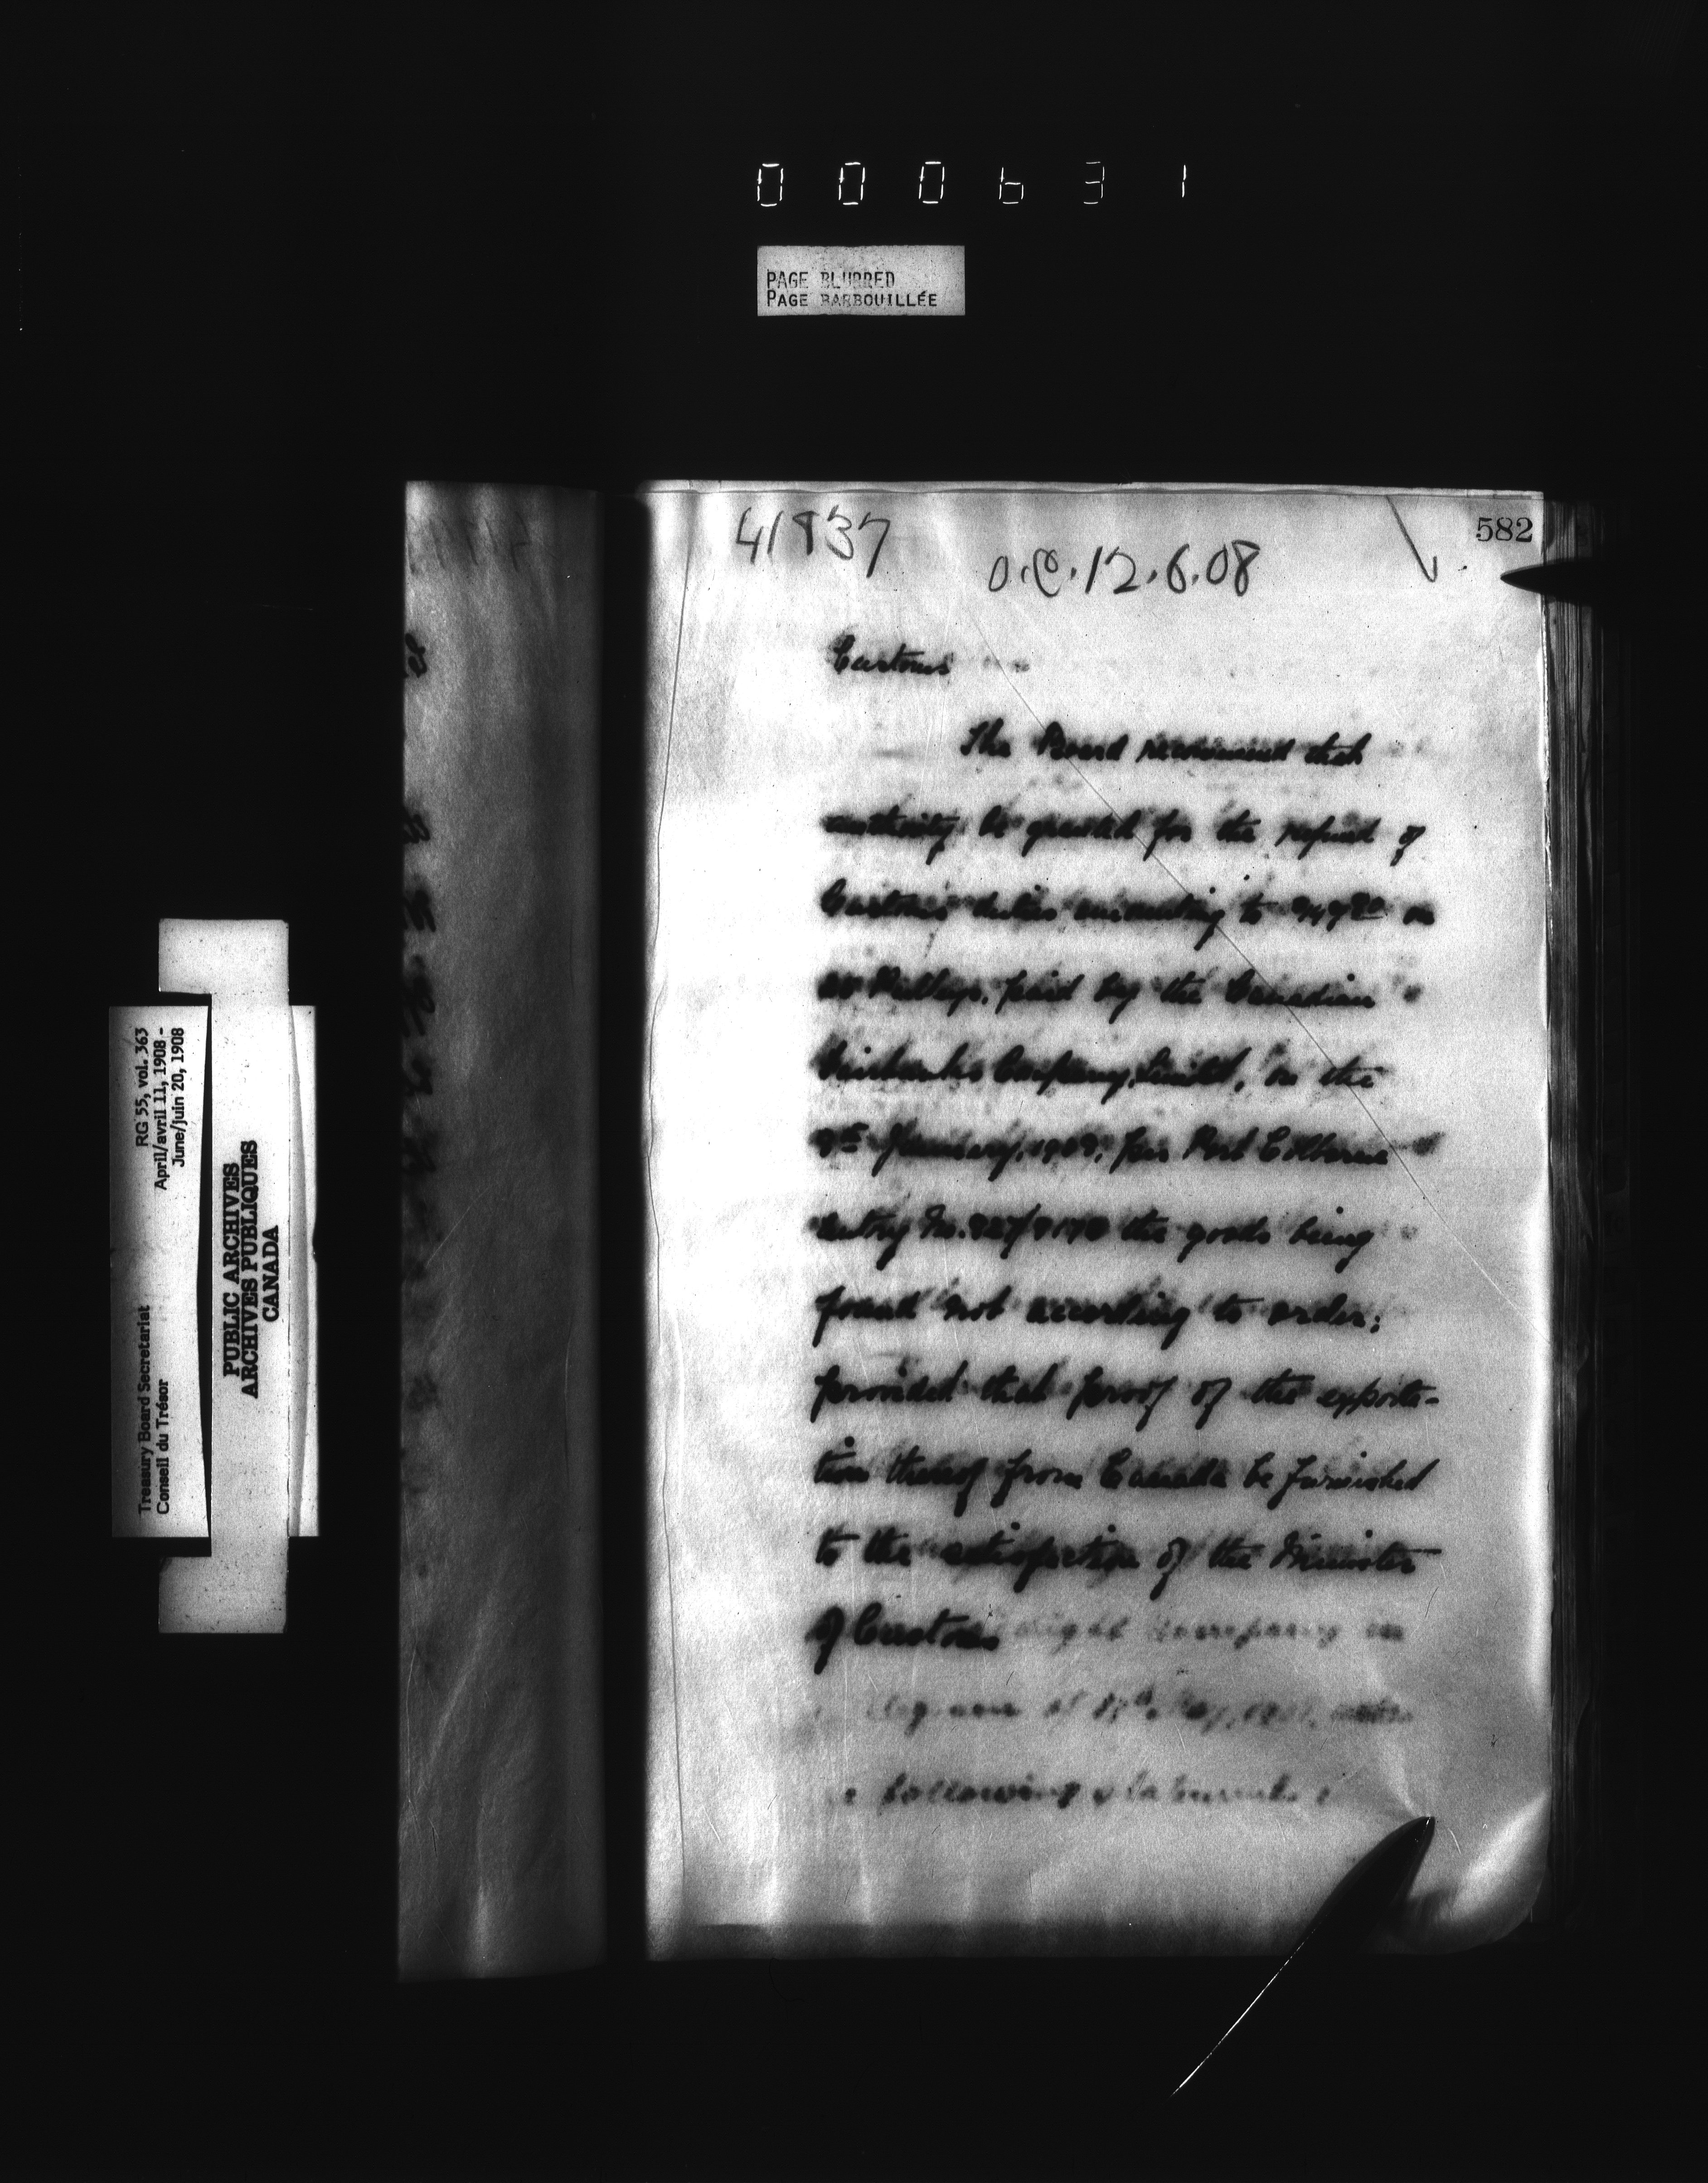 000631
PAGE BLURRED
PAGE BARBOUILLÉE
582
41837
O.C. 12.6.08
Customs
The Board recommend that
authority be granted for the refund of
Customs duties amounting to on
Pulleys, paid by the Canadian
Fairbanks Company, Limited, on the
January, per Port Colborne
entry No. the goods being
found not according to order;
provided that proof of the exporta-
tion thereof from Canada be furnished
to the satisfaction of the Minister
of Customs
following statements
RG 55, vol. 363
April/avril 11, 1908 -
June/juin 20, 1908
Treasury Board Secretariat
Conseil du Trésor
PUBLIC ARCHIVES
ARCHIVES PUBLIQUES
CANADA